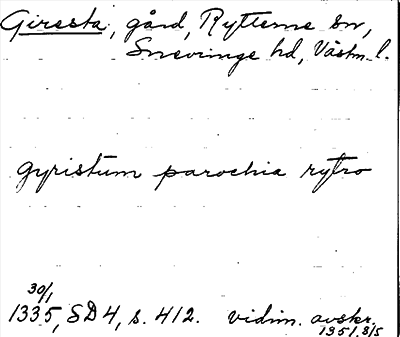 Giresta, gård, Rytterne sn,
Snevringe hd, Västm. l.
gyristum parochia rytro
30/1
1335, SD 4, s. 412. vidim. avskr.
1351 8/5